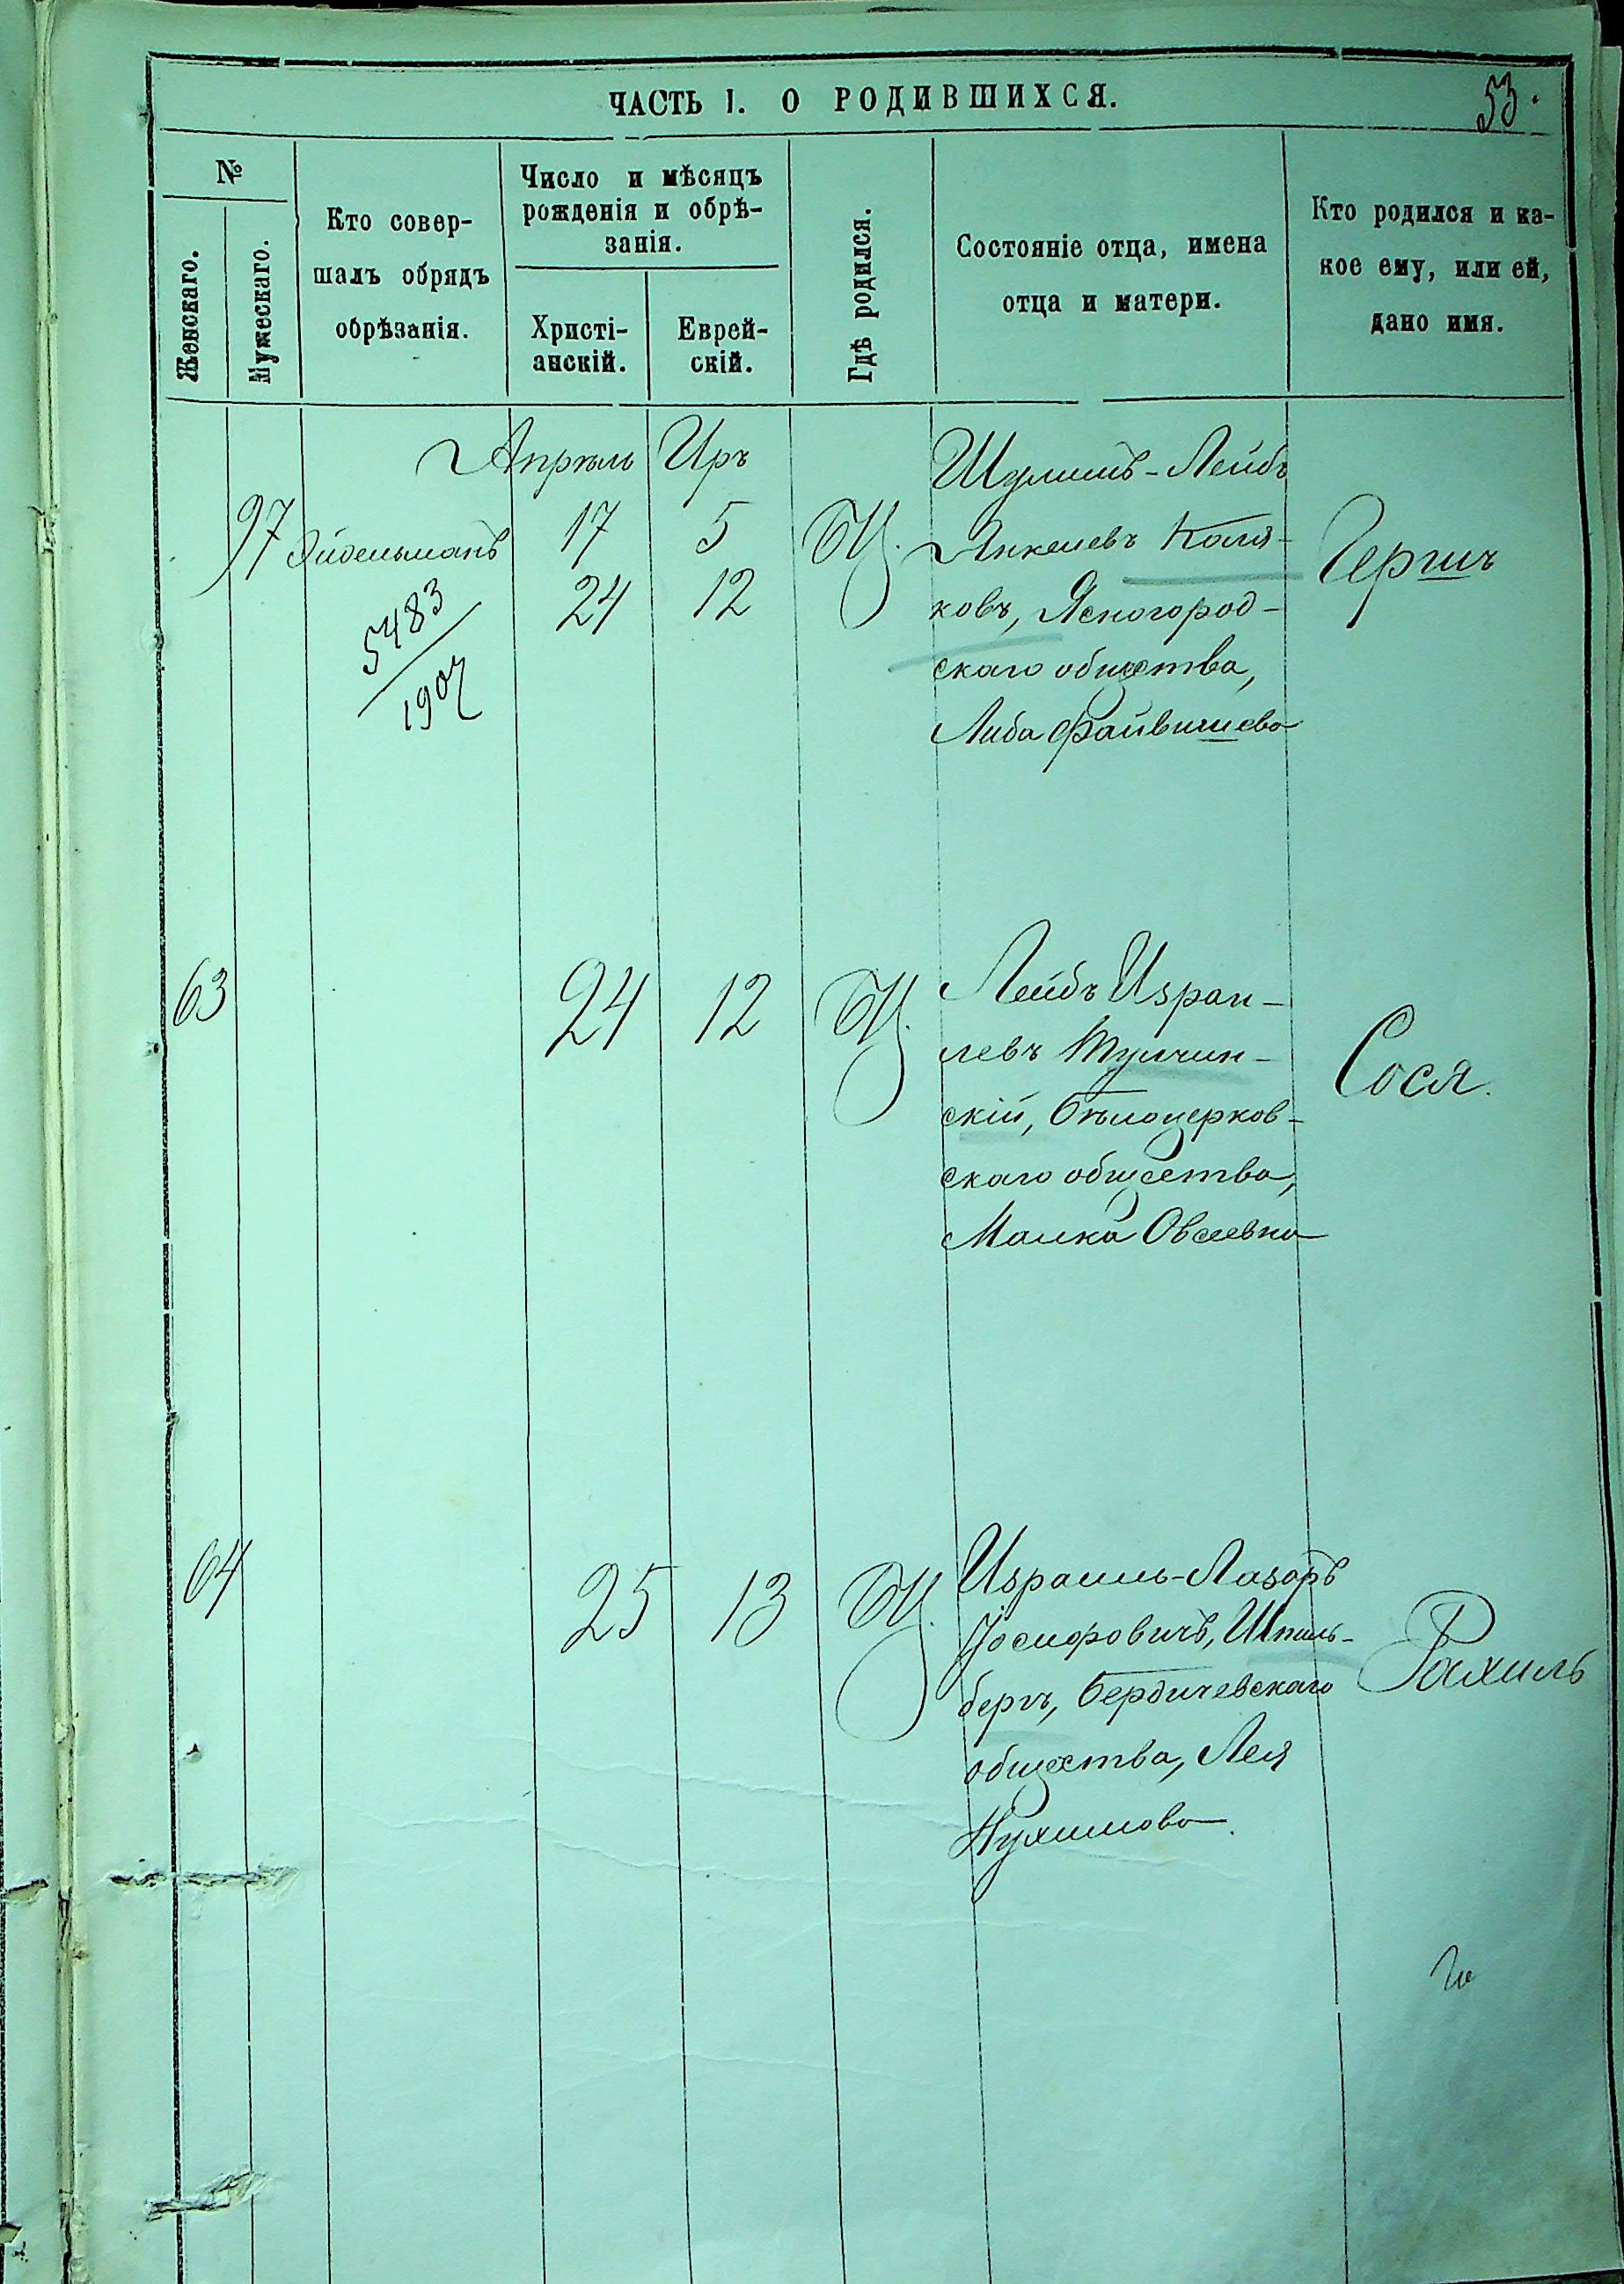 ЧАСТЬ I. О РОДИВШИХСЯ.
53.
№
Женскаго.
Мужескаго.
Кто совер-
шалъ обрядъ
обрѣзанія.
Число и мѣсяцъ
рожденія и обрѣ-
занія.
Христі-
анскій.
Еврей-
скій.
Гдѣ родился.
Состояніе отца, имена
отца и матери.
Кто родился и ка-
кое ему, или ей,
дано имя.
Апрѣль Иръ
97 Эйдельманъ 17 5
24 12
5483
1907
Шулимъ-Лейбъ
Янкелевъ Поля-
ковъ, Ясногород-
скаго общества,
Либа Файвишева
Гершъ
63 24 12
Лейбъ Израи-
левъ Тульчин-
скій, Бѣлоцерков-
скаго общества,
Малка Овсеевна
Сося.
64 25 13
Израиль-Лазарь
Іосифовичъ, Шпиль-
бергъ, Бердичевскаго
общества, Лея
Нухимова.
Рахиль